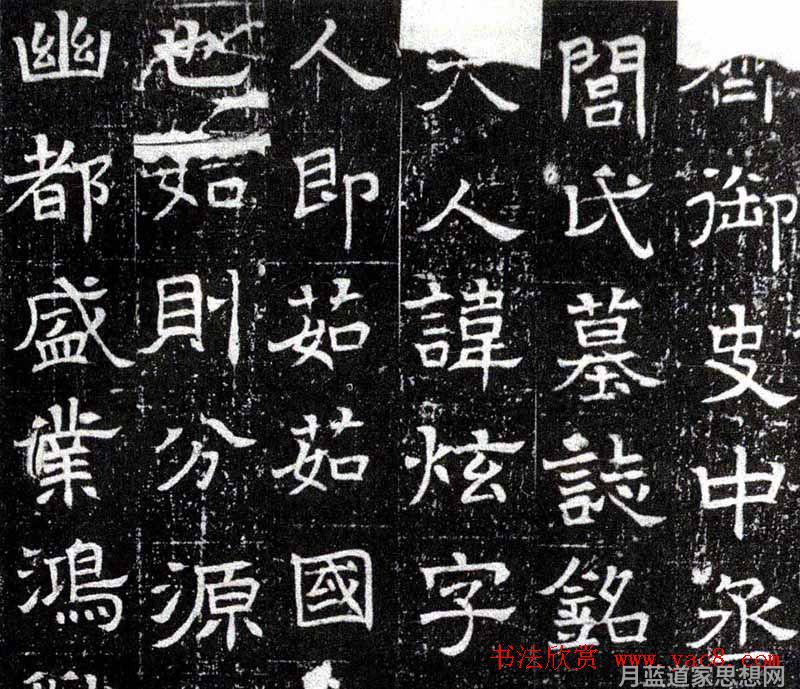 齊御史中丞
閭氏墓誌銘
夫人諱炫字
人即茹茹國
也如則分源
幽都盛業鴻
书法欣赏 www.yac8.com
月蓝道家思想网